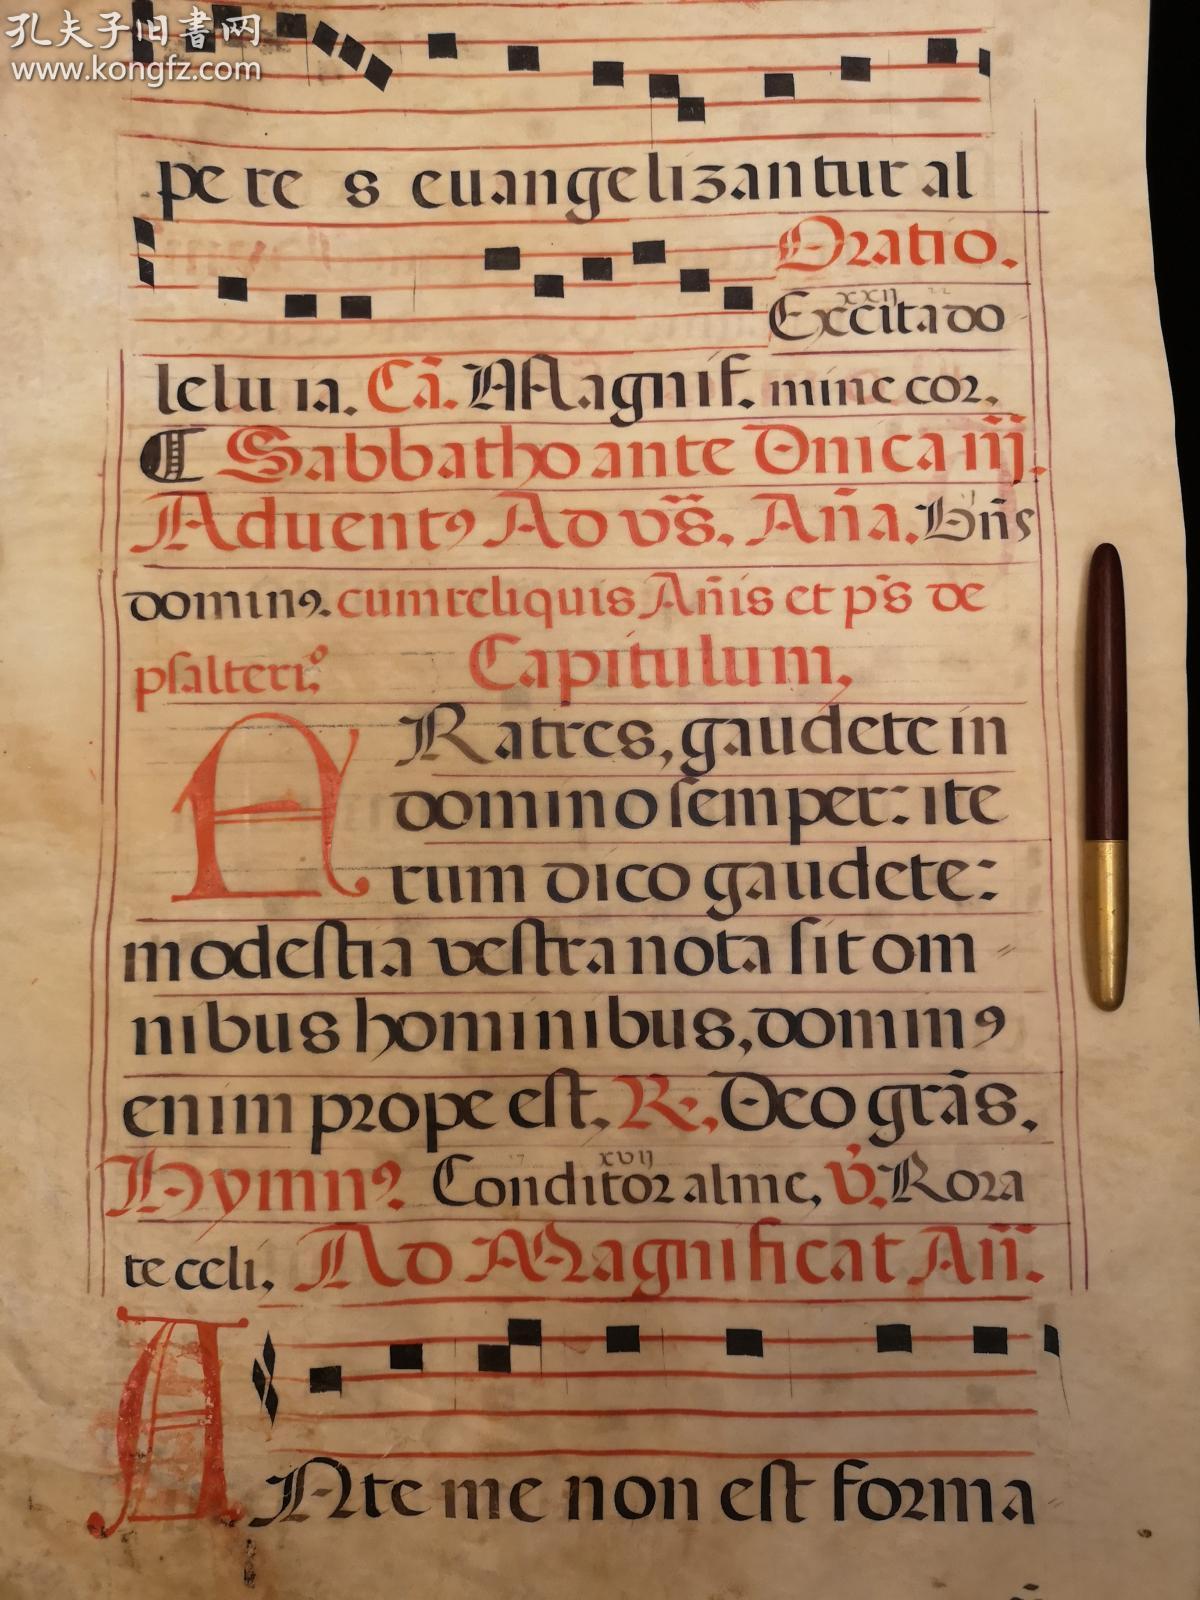 孔夫子旧書网
www.kongfz.com
pe re s euangelizantur al
Oratio.
xxij
Excita do
lelu ia. Cā. Magnif. mine cor.
Sabbatho ante Dnica iij.
Aduentꝯ Ad vs̄. Aña. Dñs
dominꝯ. cum reliquis Añis et ps̄ de
psalteri.º Capitulum,
A Ratres, gaudete in
domino semper: ite
rum dico gaudete:
modestia vestra nota sit om
nibus hominibus, dominꝯ
enim prope est, R, Deo grās.
xvij
Hymnꝯ. Conditor alme, V. Rora
te celi, Ad Magnificat Añ.
A Nte me non est forma